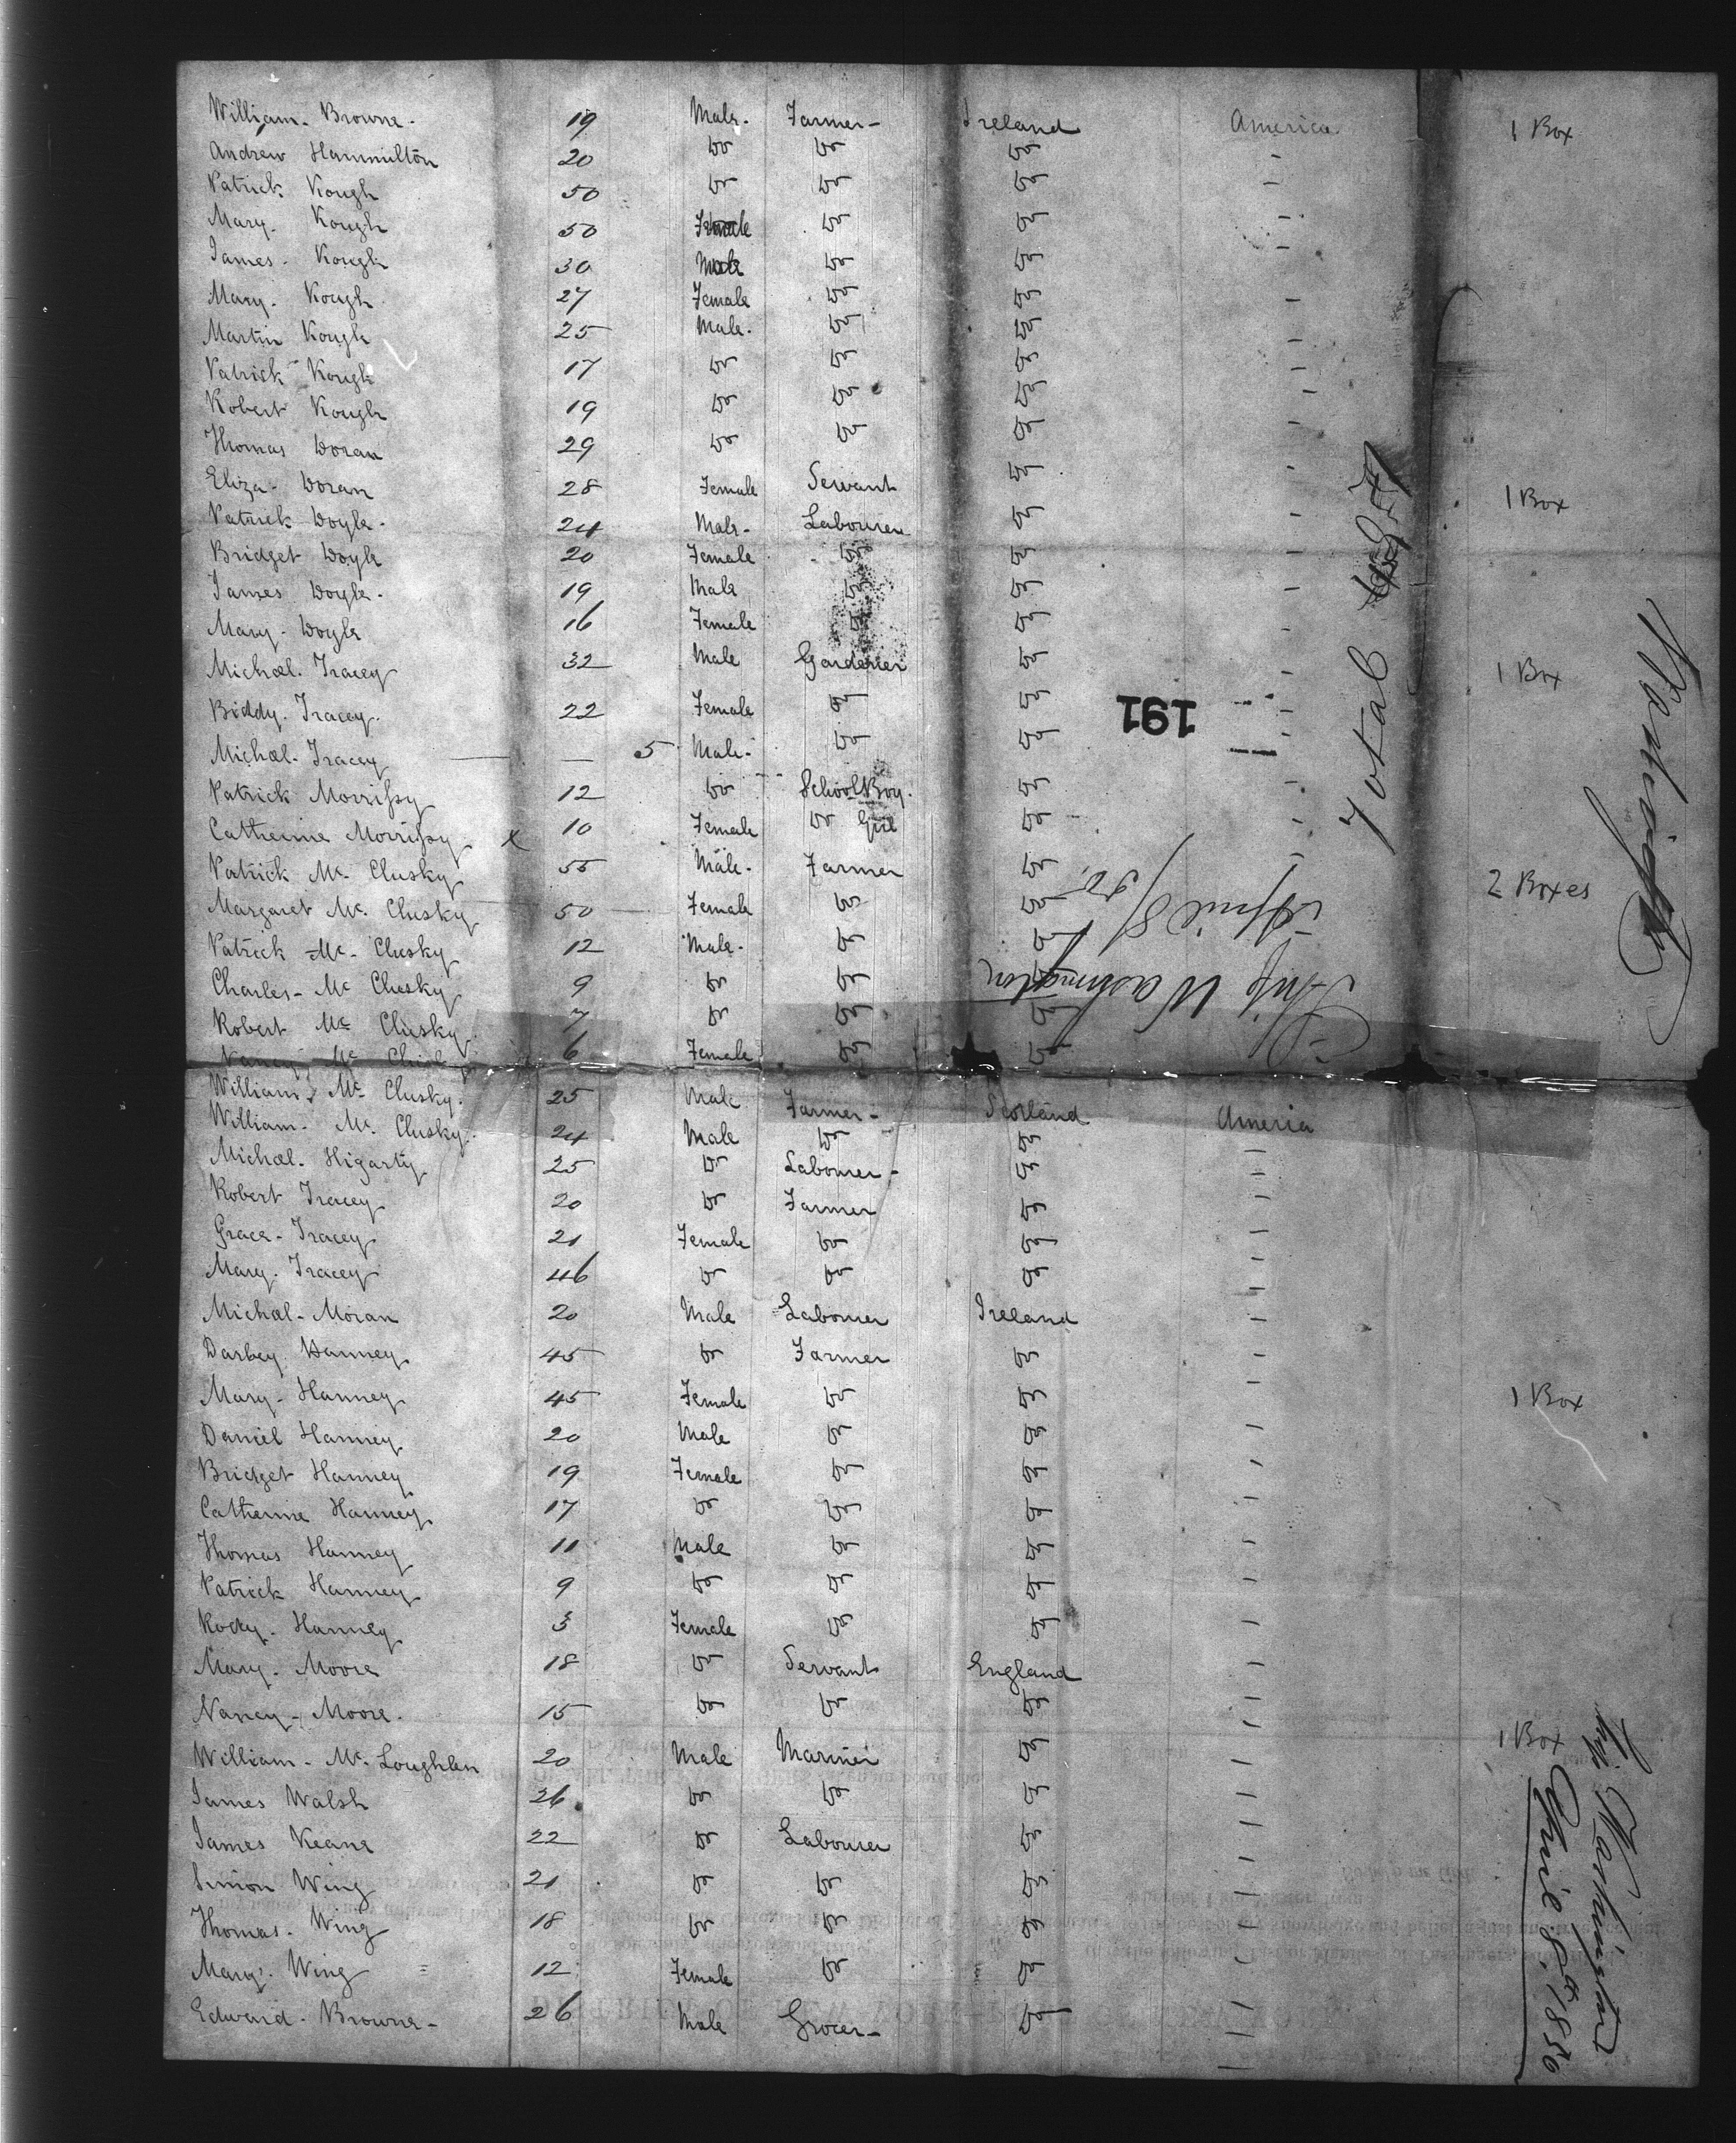 William. Browne. 19 Male. Farmer- Ireland America. 1 Box
Andrew Hammilton 20 Do Do Do -
Patrick Kough 50 Do Do Do -
Mary. Kough 50 Female Do Do -
James. Kough 30 Male Do Do -
Mary. Kough 27 Female Do Do -
Martin Kough 25 Male. Do Do -
Patrick Kough 17 Do Do Do -
Robert Kough 19 Do Do Do -
Thomas Doran 29 Do Do Do -
Eliza- Doran 28 Female Servant Do - 1 Box
Patrick Doyle- 24 Male- Labourer Do -
Bridget Doyle 20 Female Do Do -
James Doyle- 19 Male Do Do -
Mary- Doyle 16 Female Do Do -
Michael. Tracey 32 Male Gardener Do - 1 Box
Biddy. Tracey. 22 Female Do Do -
Michael- Tracey - 5 Male- Do Do -
Patrick Morrissy 12 Do School Boy. Do -
Catherine Morrissy x 10 Female Do Girl Do -
Patrick Mc Clusky 55 Male- Farmer Do - 2 Boxes
Margaret Mc. Clusky 50 Female Do Do
Patrick Mc- Clusky 12 Male- Do Do
Charles- Mc Clusky 9 Do Do Do
Robert Mc Clusky 7 Do Do Do
Nancy Mc 6 Female Do Do
William. Mc Clusky. 25 Male Farmer- Scotland America
William- Mc. Clusky. 24 Male Do Do -
Michael. Higarty 25 Do Labourer- Do -
Robert Tracey 20 Do Farmer Do -
Grace- Tracey 21 Female Do Do -
Mary. Tracey 46 Do Do Do -
Michael- Moran 20 Male Labourer Ireland -
Darbey. Hanney 45 Do Farmer Do -
Mary- Hanney 45 Female Do Do - 1 Box
Daniel Hanney 20 Male Do Do -
Bridget Hanney 19 Female Do Do -
Catherine Hanney 17 Do Do Do -
Thomas Hanney 11 Male Do Do -
Patrick Hanney 9 Do Do Do -
Hanney 3 Female Do Do -
Mary. Moore 18 Do Servant England -
Nancy- Moore. 15 Do Do Do -
William- Mc. Loughlen 20 Male Mariner Do - 1 Box
James Walsh 26 Do Do Do -
James Keane 22 Do Labourer Do -
Simon Wing 21 Do Do Do -
Thomas- Wing 18 Do Do Do -
Mary. Wing 12 Female Do Do -
Edward- Browne- 26 Male Grocer- Do -
191
Total
Ship Washington
April 8/50
Washington
Ship Washington
April 8th, 1850